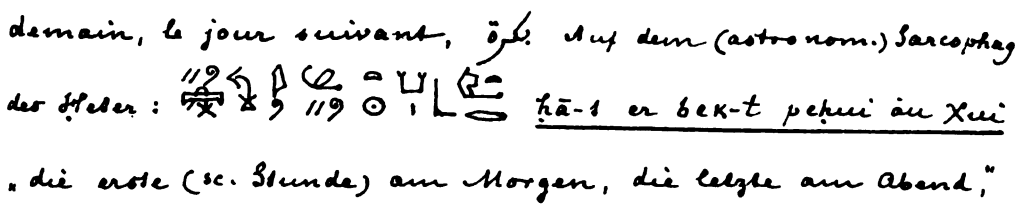 demain, le jour suivant, بكرة. Auf dem (astronom.) Sarcophag
des Ḥeter : ḥā-t er bek-t peḥui àu Xui
„die erste (sc. Stunde) am Morgen, die letzte am Abend,“